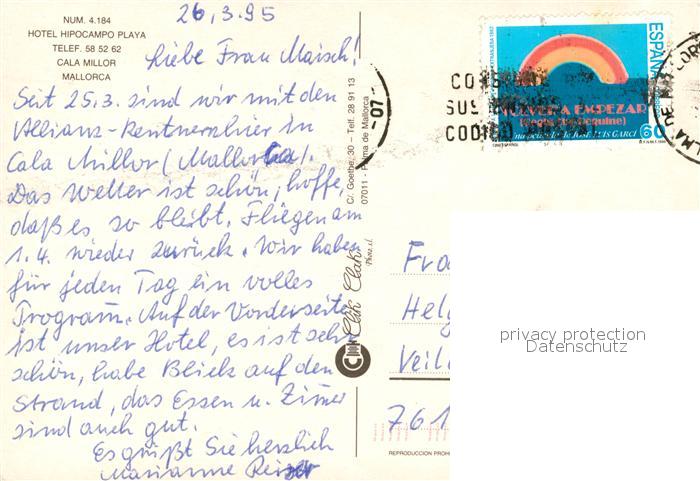 NUM. 4.184
HOTEL HIPOCAMPO PLAYA
TELEF. 58 52 62
CALA MILLOR
MALLORCA
26.3.95
Liebe Frau Maisch!
Seit 25.3. sind wir mit den
Allianz-Rentnern hier in
Cala Millor (Mallorca).
Das Wetter ist schön, hoffe,
daß es so bleibt. Fliegen am
1.4. wieder zurück. Wir haben
für jeden Tag ein volles
Program. Auf der Vorderseite
ist unser Hotel, es ist sehr
schön, habe Blick auf den
Strand, das Essen u. Zimer
sind auch gut.
Es grüßt Sie herzlich
Marianne
C/. Goethe, 30 - Telf. 28 91 13
07011 - Palma de Mallorca
Clik Clak
Photo s.l.
ESPAÑA
VOLVER A EMPEZAR
(Begin the Beguine)
una película de José Luis GARCI
60
07
CODIGO
PALMA DE MALLORCA
Fra
Helg
Veil
761
privacy protection
Datenschutz
REPRODUCCION PROHI